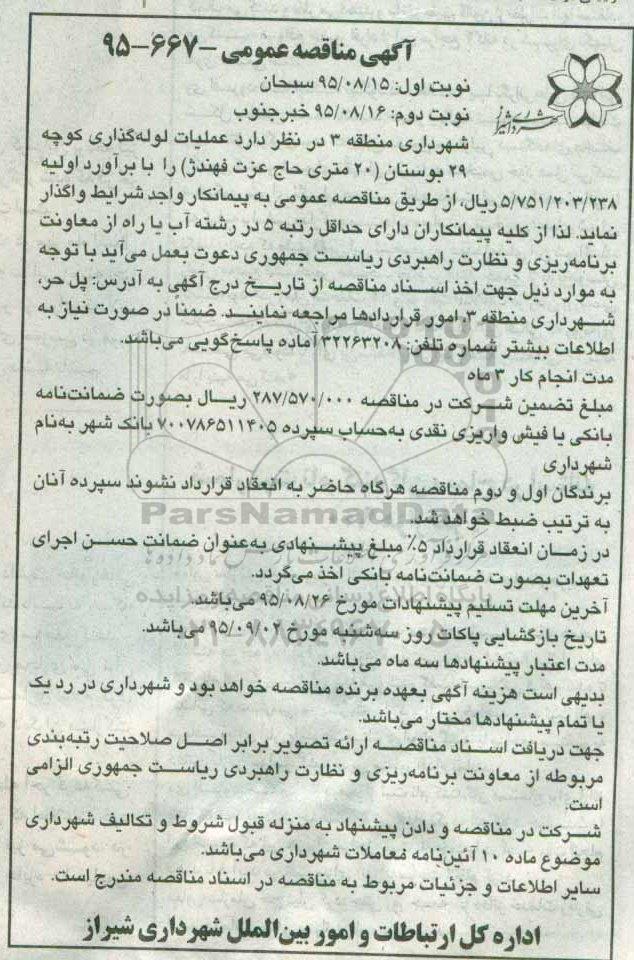 آگهی مناقصه عمومی -۶۶۷-۹۵
نوبت اول: ۹۵/۰۸/۱۵ سبحان
نوبت دوم: ۹۵/۰۸/۱۶ خبرجنوب
شهرداری شیراز
شهرداری منطقه ۳ در نظر دارد عملیات لوله‌گذاری کوچه
۲۹ بوستان (۲۰ متری حاج عزت فهندژ) را با برآورد اولیه
۵/۷۵۱/۲۰۳/۲۳۸ ریال، از طریق مناقصه عمومی به پیمانکار واجد شرایط واگذار
نماید. لذا از کلیه پیمانکاران دارای حداقل رتبه ۵ در رشته آب یا راه از معاونت
برنامه‌ریزی و نظارت راهبردی ریاست جمهوری دعوت بعمل می‌آید با توجه
به موارد ذیل جهت اخذ اسناد مناقصه از تاریخ درج آگهی به آدرس: پل حر،
شهرداری منطقه ۳، امور قراردادها مراجعه نمایند. ضمناً در صورت نیاز به
اطلاعات بیشتر شماره تلفن: ۳۲۲۶۳۲۰۸ آماده پاسخ‌گویی می‌باشد.
مدت انجام کار ۳ ماه
مبلغ تضمین شرکت در مناقصه ۲۸۷/۵۷۰/۰۰۰ ریال بصورت ضمانت‌نامه
بانکی یا فیش واریزی نقدی به‌حساب سپرده ۷۰۰۷۸۶۵۱۱۴۰۵ بانک شهر به‌نام
شهرداری
برندگان اول و دوم مناقصه هرگاه حاضر به انعقاد قرارداد نشوند سپرده آنان
به ترتیب ضبط خواهد شد.
ParsNamadData
در زمان انعقاد قرارداد ۵٪ مبلغ پیشنهادی به‌عنوان ضمانت حسن اجرای
تعهدات بصورت ضمانت‌نامه بانکی اخذ می‌گردد.
آخرین مهلت تسلیم پیشنهادات مورخ ۹۵/۰۸/۲۶ می‌باشد.
تاریخ بازگشایی پاکات روز سه‌شنبه مورخ ۹۵/۰۹/۰۲ می‌باشد.
مدت اعتبار پیشنهادها سه ماه می‌باشد.
بدیهی است هزینه آگهی بعهده برنده مناقصه خواهد بود و شهرداری در رد یک
یا تمام پیشنهادها مختار می‌باشد.
جهت دریافت اسناد مناقصه ارائه تصویر برابر اصل صلاحیت رتبه‌بندی
مربوطه از معاونت برنامه‌ریزی و نظارت راهبردی ریاست جمهوری الزامی
است.
شرکت در مناقصه و دادن پیشنهاد به منزله قبول شروط و تکالیف شهرداری
موضوع ماده ۱۰ آئین‌نامه معاملات شهرداری می‌باشد.
سایر اطلاعات و جزئیات مربوط به مناقصه در اسناد مناقصه مندرج است.
اداره کل ارتباطات و امور بین‌الملل شهرداری شیراز